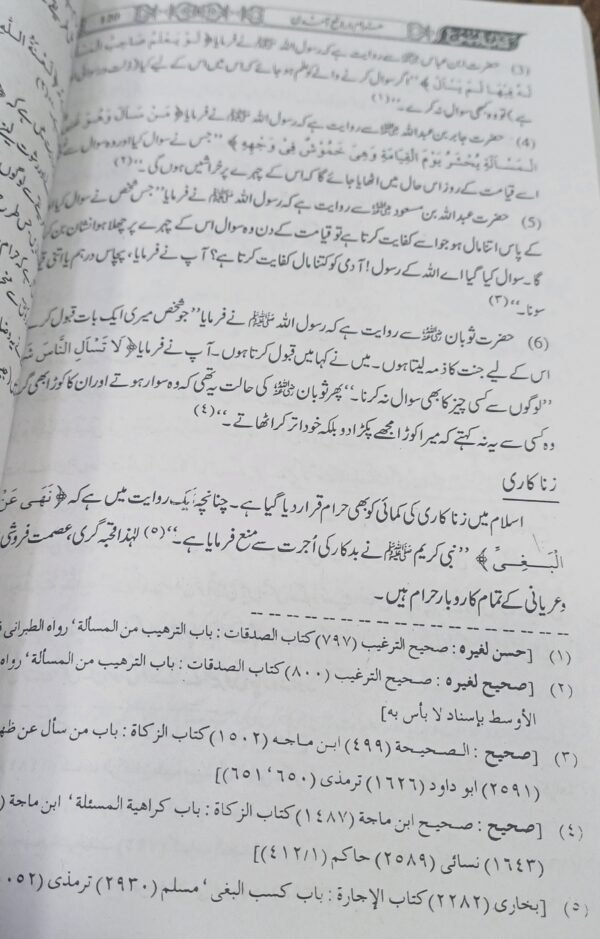 130
(3) حضرت ابن عباس رضی اللہ عنہ سے روایت ہے کہ رسول اللہ ﷺ نے فرمایا ﴿ لَوْ يَعْلَمُ صَاحِبُ
لَهُ فِيْهَا لَمْ يَسْأَلْ ﴾ ”اگر سوال کرنے والے کو علم ہو جائے کہ اس میں اس کے لیے کیا
ہے) تو وہ کبھی سوال نہ کرے۔“ (۱)
(4) حضرت جابر بن عبداللہ رضی اللہ عنہ سے روایت ہے کہ رسول اللہ ﷺ نے فرمایا ﴿ مَنْ سَأَلَ وَهُوَ
الْمَسْأَلَةِ يُحْشَرُ يَوْمَ الْقِيَامَةِ وَهِيَ خُمُوْشٌ فِيْ وَجْهِهِ ﴾ ”جس نے سوال کیا اور وہ سوال سے
اسے قیامت کے روز اس حال میں اٹھایا جائے گا کہ اس کے چہرے پر خراشیں ہوں گی۔“ (۲)
(5) حضرت عبداللہ بن مسعود رضی اللہ عنہ سے روایت ہے کہ رسول اللہ ﷺ نے فرمایا ”جس شخص نے سوال کیا
کے پاس اتنا مال ہو جو اسے کفایت کرتا ہے تو قیامت کے دن وہ سوال اس کے چہرے پر چھلا ہوا نشان بن کر
گا۔ سوال کیا گیا اے اللہ کے رسول! آدمی کو کتنا مال کفایت کرتا ہے؟ آپ نے فرمایا، پچاس درہم یا اتنی
سونا۔“ (۳)
(6) حضرت ثوبان رضی اللہ عنہ سے روایت ہے کہ رسول اللہ ﷺ نے فرمایا ”جو شخص میری ایک بات قبول کرے
اس کے لیے جنت کا ذمہ لیتا ہوں۔ میں نے کہا میں قبول کرتا ہوں۔ آپ نے فرمایا ﴿ لَا تَسْأَلِ النَّاسَ
”لوگوں سے کسی چیز کا بھی سوال نہ کرنا۔“ پھر ثوبان رضی اللہ عنہ کی حالت یہ تھی کہ وہ سوار ہوتے اور ان کا کوڑا بھی گر
وہ کسی سے یہ نہ کہتے کہ میرا کوڑا مجھے پکڑا دو بلکہ خود اتر کر اٹھاتے۔“ (٤)
زنا کاری
اسلام میں زنا کاری کی کمائی کو بھی حرام قرار دیا گیا ہے۔ چنانچہ ایک روایت میں ہے کہ ﴿ نَهَى عَنْ
الْبَغِيِّ ﴾ ”نبی کریم ﷺ نے بدکار کی اُجرت سے منع فرمایا ہے۔“ (٥) لہٰذا قحبہ گری، عصمت فروشی
و عریانی کے تمام کاروبار حرام ہیں۔
(١) [حسن لغيره : صحيح الترغيب (٧٩٧) كتاب الصدقات : باب الترهيب من المسألة ' رواه الطبرانى
(٢) [صحيح لغيره : صحيح الترغيب (٨٠٠) كتاب الصدقات : باب الترهيب من المسألة ' رواه
الأوسط بإسناد لا بأس به]
(٣) [صحيح : الصحيحة (٤٩٩) ابن ماجه (١٥٠٢) كتاب الزكاة : باب من سأل عن
(٢٥٩١) ابو داود (١٦٢٦) ترمذى (٦٥٠ ' ٦٥١)]
(٤) [صحيح : صحيح ابن ماجة (١٤٨٧) كتاب الزكاة : باب كراهية المسئلة ' ابن ماجة
(١٦٤٣) نسائى (٢٥٨٩) حاكم (٤١٢/١)]
(٥) [بخارى (٢٢٨٢) كتاب الإجارة : باب كسب البغى ' مسلم (٢٩٣٠) ترمذى